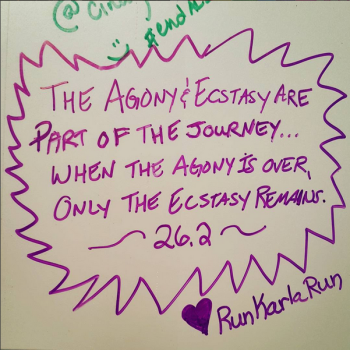 THE AGONY & ECSTASY ARE
PART OF THE JOURNEY...
WHEN THE AGONY IS OVER,
ONLY THE ECSTASY REMAINS.
~ 26.2 ~
♥ RunKarlaRun